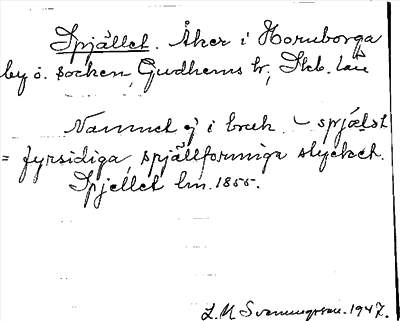 Spjället. Åker i Hornborga
by o. socken, Gudhems hd, Skb. län
Namnet ej i bruk. – spjälst
= fyrsidiga, spjällformiga stycket.
Spjellet lm. 1855.
L. M. Svenungsson. 1947.